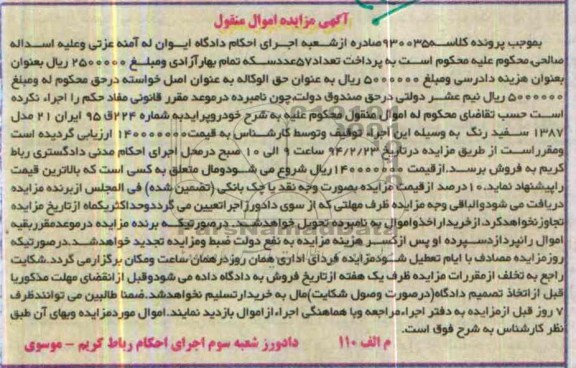 آگهی مزایده اموال منقول
بموجب پرونده کلاسه ۹۳۰۰۳۵صادره ازشعبه اجرای احکام دادگاه ایوان له آمنه عزتی وعلیه اسداله
صالحی محکوم علیه محکوم است به پرداخت تعداد۵۷عددسکه تمام بهارآزادی ومبلغ ۲۵۰۰۰۰۰ ریال بعنوان
بعنوان هزینه دادرسی ومبلغ ۵۰۰۰۰۰۰ ریال به عنوان حق الوکاله به عنوان اصل خواسته درحق محکوم له ومبلغ
۵۰۰۰۰۰۰ ریال نیم عشر دولتی درحق صندوق دولت.چون نامبرده درموعد مقرر قانونی مفاد حکم را اجراء نکرده
است حسب تقاضای محکوم له اموال منقول محکوم علیه به شرح خودروپرایدبه شماره ۲۲۴ق ۹۵ ایران ۲۱ مدل
۱۳۸۷ سفید رنگ به وسیله این اجراء توقیف وتوسط کارشناس به قیمت۱۴۰۰۰۰۰۰۰ ارزیابی گردیده است
ومقرراست از طریق مزایده درتاریخ ۹۴/۲/۲۳ ساعت ۹ الی ۱۰ صبح درمحل اجرای احکام مدنی دادگستری رباط
کریم به فروش برسد.ازقیمت ۱۴۰۰۰۰۰۰۰ریال شروع می شودومال متعلق به کسی است که بالاترین قیمت
راپیشنهاد نماید.۱۰درصد ازقیمت مزایده بصورت وجه نقد یا چک بانکی (تضمین شده) فی المجلس ازبرنده مزایده
دریافت می شودوالباقی وجه مزایده ظرف مهلتی که از سوی دادورزاجراتعیین می گرددوحداکثریکماه ازتاریخ مزایده
تجاوزنخواهدکرد.ازخریداراخذواموال به نامبرده تحویل خواهدشد. درصورتیکه برنده مزایده درموعدمقرربقیه
اموال رانپردازدسپرده او پس ازکسر هزینه مزایده به نفع دولت ضبط ومزایده تجدید خواهدشد.درصورتیکه
روزمزایده مصادف با ایام تعطیل شودمزایده فردای اداری همان روزدرهمان ساعت ومکان برگزارمی گردد.شکایت
راجع به تخلف ازمقررات مزایده ظرف یک هفته ازتاریخ فروش به دادگاه داده می شودوقبل ازانقضای مهلت مذکوریا
قبل ازاتخاذ تصمیم دادگاه(درصورت وصول شکایت)مال به خریدارتسلیم نخواهدشد.ضمنا طالبین می توانندظرف
۷ روز قبل ازمزایده به دفتر اجراءمراجعه وبا هماهنگی اجراءازاموال بازدید نمایند.اموال موردمزایده وبهای آن طبق
نظر کارشناس به شرح فوق است.
م الف ۱۱۰ دادورز شعبه سوم اجرای احکام رباط کریم – موسوی